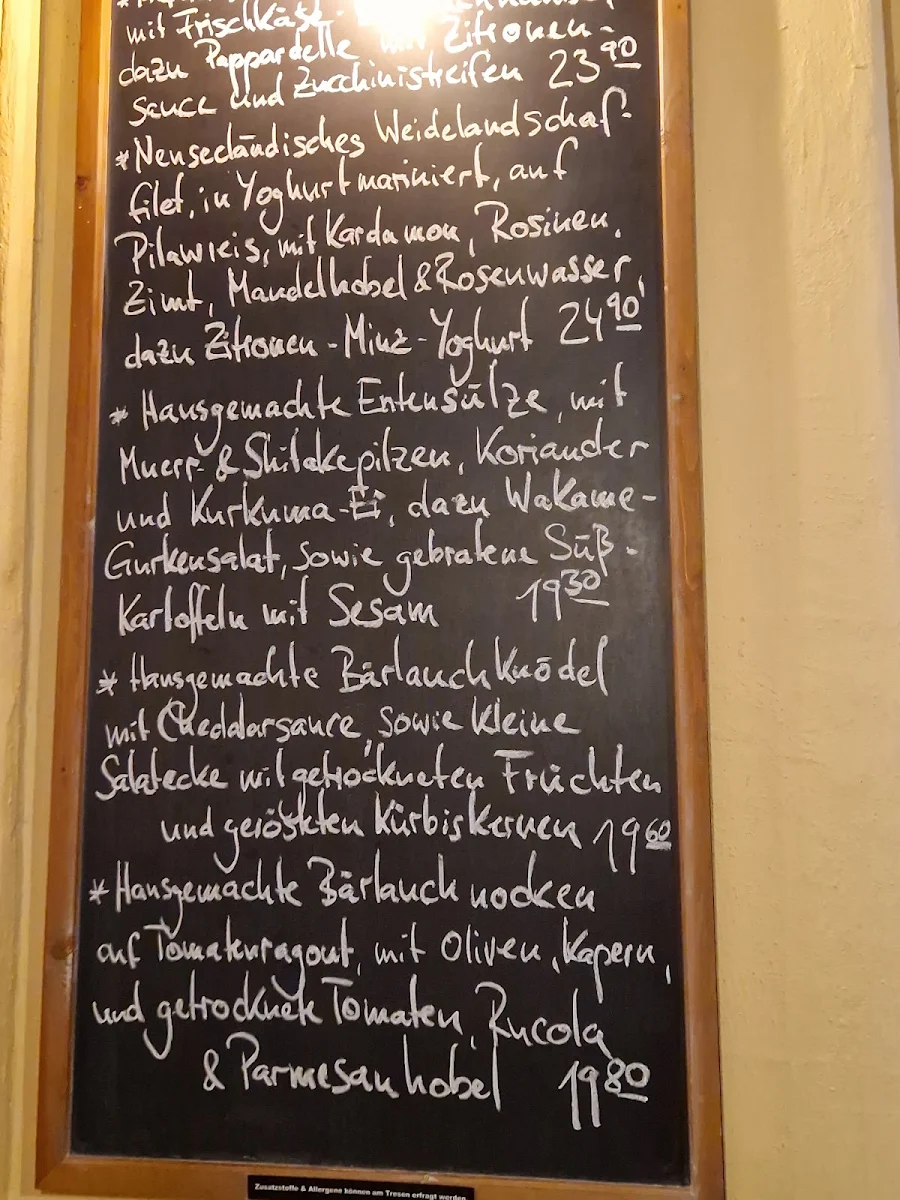 mit Frischkäse.
dazu Pappardelle mit Zitronen-
sauce und Zucchinistreifen 23⁹⁰
*Neuseeländisches Weidelandschaf-
filet, in Yoghurt mariniert, auf
Pilawreis, mit Kardamon, Rosinen,
Zimt, Mandelhobel & Rosenwasser,
dazu Zitronen-Minz-Yoghurt 24⁹⁰
* Hausgemachte Entensülze, mit
Muerr- & Shitakepilzen, Koriander
und Kurkuma-Ei, dazu Wakame-
Gurkensalat, sowie gebratene Süß-
Kartoffeln mit Sesam 19³⁰
* Hausgemachte Bärlauch Knödel
mit Cheddarsauce, sowie kleine
Salatecke mit getrockneten Früchten
und gerösteten Kürbiskernen 19⁶⁰
* Hausgemachte Bärlauch nocken
auf Tomatenragout, mit Oliven, Kapern,
und getrocknete Tomaten, Rucola
& Parmesanhobel 19⁸⁰
Zusatzstoffe & Allergene können am Tresen erfragt werden